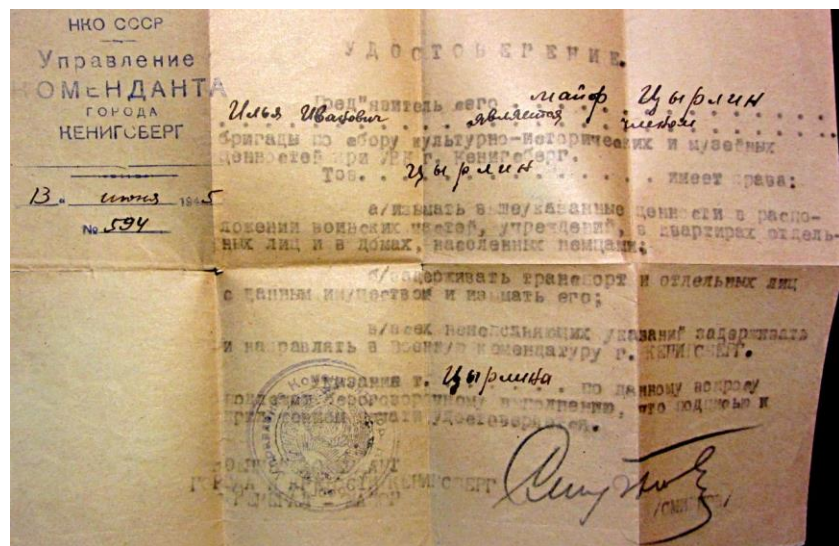 НКО СССР
Управление
КОМЕНДАНТА
ГОРОДА
КЕНИГСБЕРГ
13 " июня 1945
№ 594
УДОСТОВЕРЕНИЕ.
Пред"явитель сего . . майор Цырлин
Илья Иванович является членом
бригады по сбору культурно-исторических и музейных
ценностей при УВК г. Кенигсберг.
Тов. . . Цырлин . . . . . имеет права:
а/изымать выше/казанные ценности в распо-
ложении воинских частей, учреждений, в квартирах отдель-
ных лиц и в домах, населенных немцами;
б/задерживать транспорт и отдельных лиц
с данным им/ществом и изымать его;
в/всех неисполняющих указаний задерживать
и направлять в военную комендатуру г. КЕНИГСБЕРГ.
Указания т. Цырлина . . по данному вопросу
подлежат беспоговорочному выполнению, что подписью и
приложением печати удостоверяется.
ВОЕННЫЙ КОМЕНДАНТ
ГОРОДА И КРЕПОСТИ КЕНИГСБЕРГ
ГЕНЕРАЛ - МАЙОР
/СМИРНОВ/